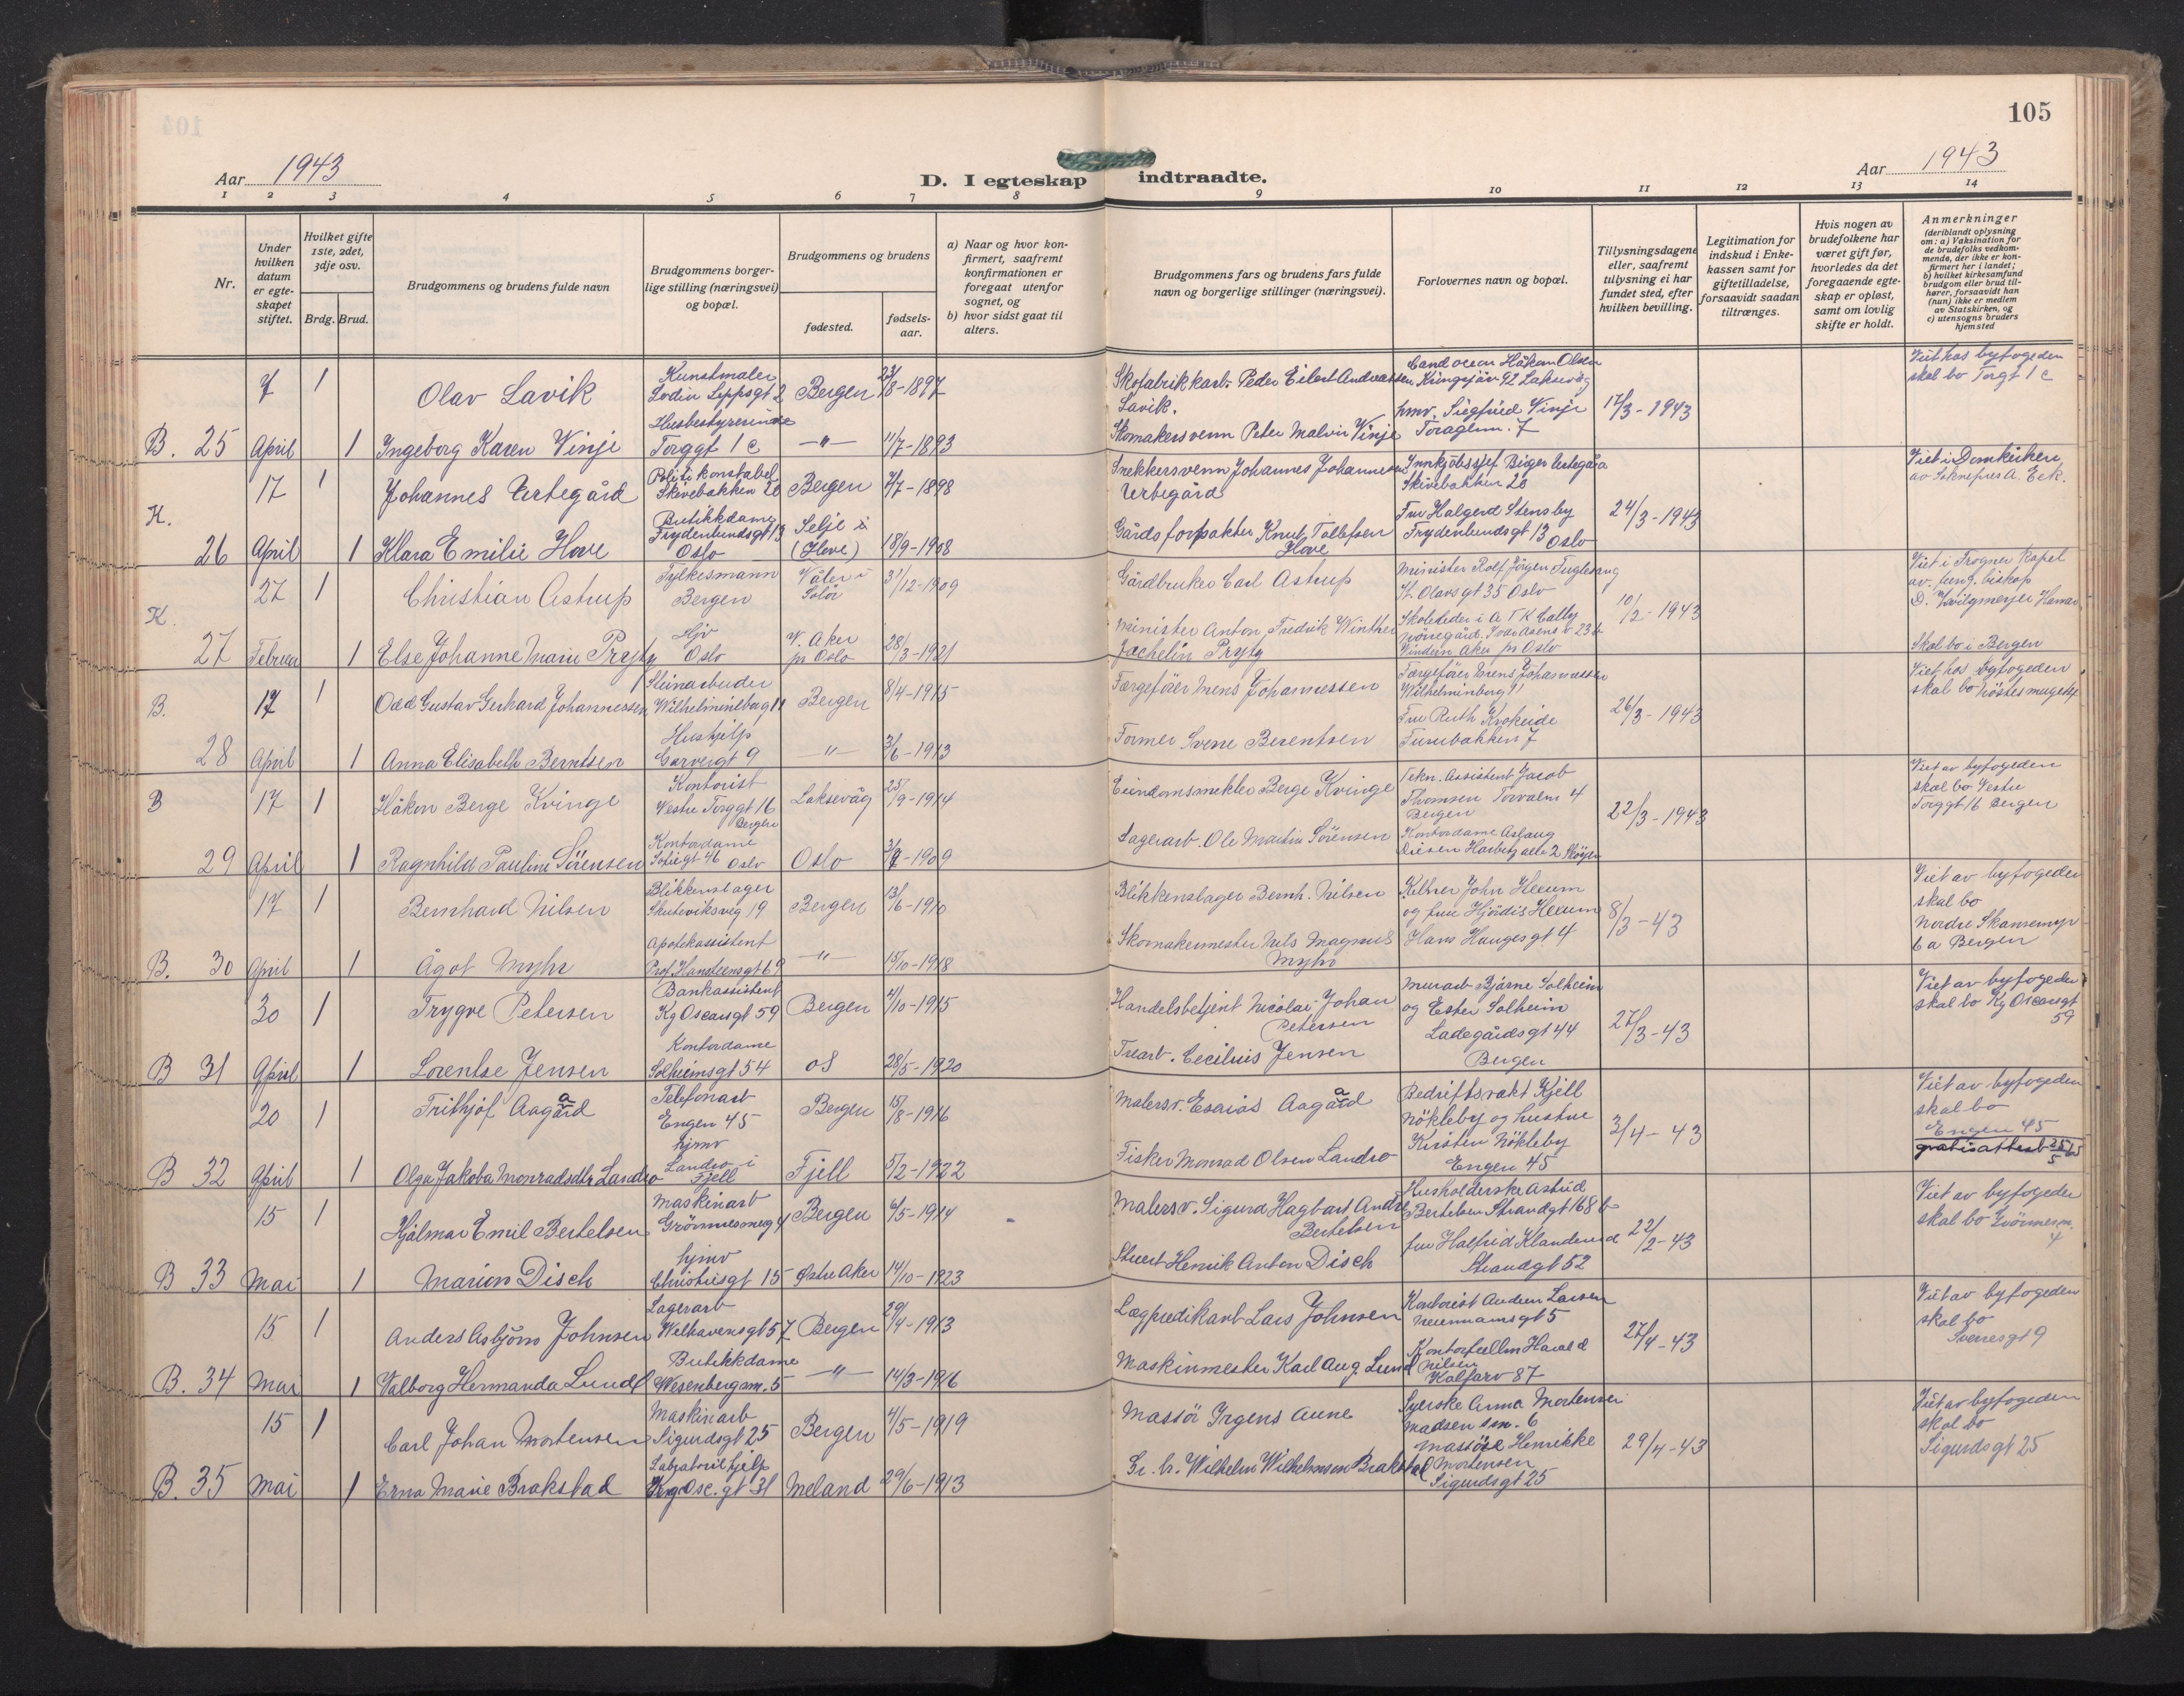 105
Aar 1943
D. I egteskap indtraadte.
Aar 1943
1 2 3 4 5 6 7 8 9 10 11 12 13 14
Nr.
Under hvilken datum er egteskapet stiftet.
Hvilket gifte 1ste, 2det, 3dje osv.
Brdg. Brud.
Brudgommens og brudens fulde navn
Brudgommens borgerlige stilling (næringsvei) og bopæl.
Brudgommens og brudens
fødested.
fødselsaar.
a) Naar og hvor konfirmert, saafremt konfirmationen er foregaat utenfor sognet, og
b) hvor sidst gaat til alters.
Brudgommens fars og brudens fars fulde navn og borgerlige stillinger (næringsvei).
Forlovernes navn og bopæl.
Tillysningsdagene eller, saafremt tillysning ei har fundet sted, efter hvilken bevilling.
Legitimation for indskud i Enkekassen samt for giftetilladelse, forsaavidt saadan tiltrænges.
Hvis nogen av brudefolkene har været gift før, hvorledes da det foregaaende egteskap er opløst, samt om lovlig skifte er holdt.
Anmerkninger (deriblandt oplysning om: a) Vaksination for de brudefolks vedkommende, der ikke er konfirmert her i landet; b) hvilket kirkesamfund brudgom eller brud tilhører, forsaavidt han (hun) ikke er medlem av Statskirken, og c) utensogns bruders hjemsted
7 1 Olav Lavik Kunstmaler Bergen 23/8-1897 Skofabrikkarb. Peder Eilert Andreassen Lavik. Håkon Olsen 92 Laksevåg Viet hos byfogeden skal bo Torgt 1 c
B. 25 April 1 Ingeborg Karen Vinje Husbestyrerinde Torggt 1 c -"- 11/7-1893 Skomakersvenn Peter Malvin Vinje hmv. Siegfried Vinje 17/3-1943
17 Johannes Urtegård Politikonstabel Skivebakken 20 Bergen 7/7-1898 Snekkersvenn Johannes Johannesen Urtegård Birger Urtegård Skivebakken 20 Viet i Domkirken av Sokneprest A. Eek.
K. 26 April 1 Klara Emilie Hove Butikkdame Frydenlundsgt 13 Oslo Selje i (Hove) 18/9-1908 Gårdsforpakter Knut Tollefsen Hove Fru Halgerd Stensby Frydenlundsgt 13 Oslo 24/3-1943
27 1 Christian Astrup Fylkesmann Bergen Våler i Solör 31/12-1909 Gårdbruker Carl Astrup Minister Rolf Jörgen Fuglesang St. Olavsgt 35 Oslo Viet i Frogner Kapel av fung. biskop
K. 27 Februar 1 Else Johanne Marie Pryty Hjv Oslo V. Aker pr Oslo 28/3-1921 Minister Anton Fredrik Winther Jachelin Pryty Vinderen Aker pr Oslo 10/2-1943 Skal bo i Bergen
17 1 Odd Gustav Gerhard Johannessen Steinarbeider Wilhelminborg 11 Bergen 8/4-1915 Færgefører Mens Johannessen Færgefører Mens Johannessen Wilhelminborg 11 Viet hos byfogeden skal bo
B. 28 April 1 Anna Elisabeth Berntsen Hushjelp 9 " 3/6-1913 Former Svene Berentsen Fru Ruth Krokeide Furubakken 7 26/3-1943
17 1 Håkon Berge Kvinge Kontorist Vestre Torggt 16 Bergen Laksevåg 25/9-1914 Eiendomsmekler Berge Kvinge Tekn. Assistent Jacob Thomsen 4 Bergen Viet av byfogeden skal bo Vestre Torggt 16 Bergen
B 29 April 1 Ragnhild Pauline Sörensen Kontordame Sofiegt 46 Oslo Oslo 1909 Lagerarb. Ole Martin Sörensen Kontordame Aslaug 22/3-1943
17 1 Bernhard Nilsen Blikkenslager Skuteviksveg 19 Bergen 13/6-1910 Blikkenslager Bernh. Nilsen Kelner John Heeum og fru Hjördis Heeum Viet av byfogeden skal bo Nordre Skansemyr 6 a Bergen
B. 30 April 1 Ågot Myhr Apotekassistent Prof. Hansteensgt 69 -"- 15/10-1918 Skomakermester Nils Magnus Myhr Hans Haugesgt 4 8/3-43
30 1 Trygve Petersen Bankassistent Kg Oscarsgt 59 Bergen 4/10-1915 Handelsbetjent Nicolai Johan Petersen Murarb Bjarne Solheim og Ester Solheim Viet av byfogeden skal bo Kg Oscarsgt 59
B 31 April 1 Lorentse Jensen Kontordame Solheimsgt 54 os 28/5-1920 Trearb. Cecilius Jensen Ladegårdsgt 44 Bergen 27/3-43
20 1 Frithjof Aagård Telefonarb Engen 45 Bergen 15/8-1916 Malersv. Esaias Aagård Bedriftsvakt Kjell Nökleby og hustru Viet av byfogeden skal bo Engen 45
B 32 April 1 Olga Jakoba Monradsdtr Landro hjmv Landro i Fjell Fjell 5/2-1922 Fisker Monrad Olsen Landro Kirsten Nökleby Engen 45 3/4-43 gratisattest
15 1 Hjalmar Emil Bertelsen Maskinarb 4 Bergen 6/5-1914 Malersv. Sigurd Hagbart André Bertelsen Husholderske Astrid Bertelsen Strandgt 168 b Viet av byfogeden skal bo 4
B 33 Mai 1 Marion Disch hjmv Christiesgt 15 Östre Aker 14/10-1923 Stuert Henrik Anton Disch fru Halfrid Klanderud Strandgt 52 22/2-43
15 1 Anders Asbjörn Johnsen Lagerarb Welhavensgt 57 Bergen 29/4-1913 Lægpredikant Lars Johnsen Kontorist Andrea Larsen 5 Viet av byfogeden skal bo Sverresgt 9
B. 34 Mai 1 Valborg Hermanda Lund Butikkdame Wesenbergsm. 5 -"- 14/3-1916 Maskinmester Karl Aug. Lund Harald Nilsen Kalfarv 87 27/4-43
15 1 Carl Johan Mortensen Maskinarb Sigurdsgt 25 Bergen 4/5-1919 Massör Irgens Aune Syerske Anna Mortensen Madsen sm. 6 Viet av byfogeden skal bo Sigurdsgt 25
B. 35 Mai 1 Erna Marie Brakstad gt 31 Meland 29/6-1913 Gr. br. Wilhelm Wilhelmsen Brakstad Massöse Henrikke Mortensen Sigurdsgt 25 29/4-43